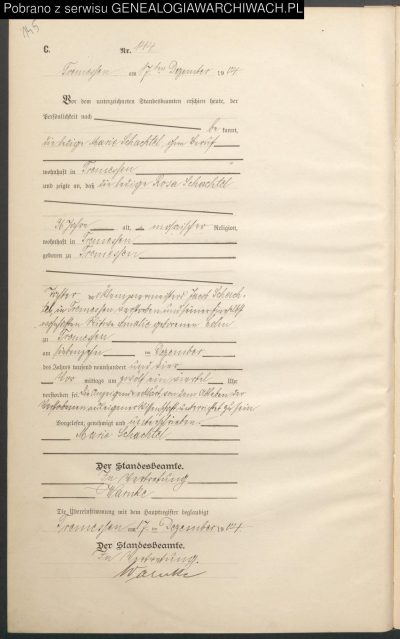 Pobrano z serwisu GENEALOGIAWARCHIWACH.PL
145
C.
Nr. 144
Tremessen am 17ten Dezember 1904
Vor dem unterzeichneten Standesbeamten erschien heute, der
Persönlichkeit nach
be kannt,
die ledige Marie Schachtel, ohne Beruf
wohnhaft in Tremessen
und zeigte an, daß die ledige Rosa Schachtel
Jahre alt, mosaischer Religion,
wohnhaft in Tremessen
geboren zu Tremessen
Tochter des Klempnermeisters Jacob Schach-
tel, in Tremessen verstorben und seiner
Ehefrau Amalie geborenen
zu Tremessen
am siebzehn ten Dezember
des Jahres tausend neunhundert und vier
Vor mittags um ein viertel Uhr
verstorben sei. Die Anzeigende erklärte, von dem Ableben der
Verstorbenen aus eigener Wissenschaft unterrichtet zu sein
Vorgelesen, genehmigt und unterschrieben
Marie Schachtel
Der Standesbeamte.
In Vertretung
Warnke
Die Übereinstimmung mit dem Hauptregister beglaubigt
Tremessen am 17 ten Dezember 1904
Der Standesbeamte.
In Vertretung.
Warnke